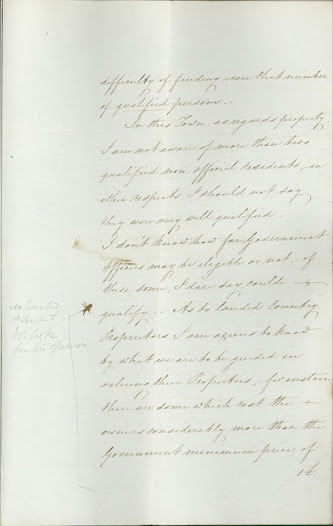 difficulty of finding even that number
of qualified persons..
In this Town, as regards property
I am not aware of more than two
qualified non. official residents, in
other respects I should not say
they were very well qualified.
I don't know how far Government
Officers may be eligible or not.. of
these some, I dare say, could
qualify.. As to landed Country
Proprietors I am anxious to know
by what we are to be guided in
valueing their Properties, for instance
there are some which cost the
owners considerably more than the
Government minimum price of
1£.
for his opinion